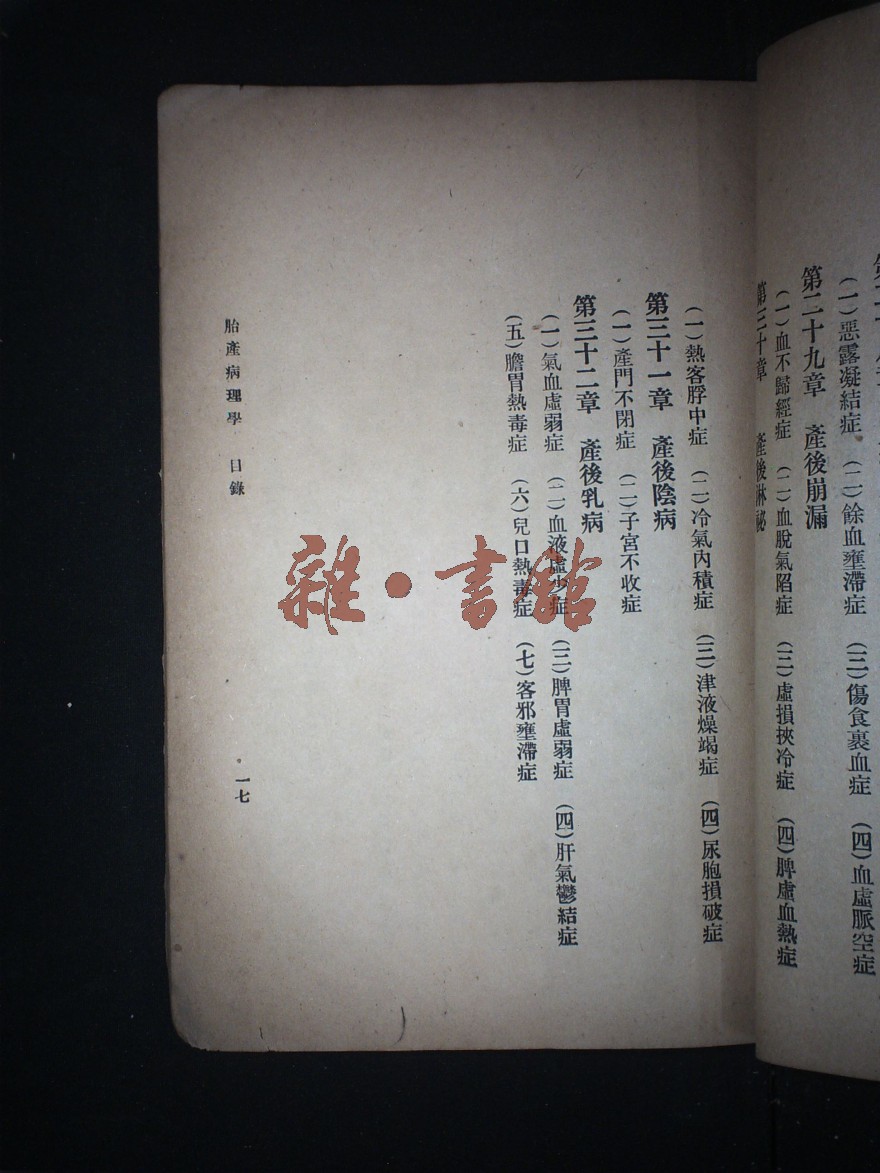 (一)惡露凝結症 (二)餘血壅滯症 (三)傷食裹血症 (四)血虛脈空症
第二十九章 產後崩漏
(一)血不歸經症 (二)血脫氣陷症 (三)虛損挾冷症 (四)脾虛血熱症
第三十章 產後淋祕
(一)熱客脬中症 (二)冷氣內積症 (三)津液燥竭症 (四)尿胞損破症
第三十一章 產後陰病
(一)產門不閉症 (二)子宮不收症
第三十二章 產後乳病
(一)氣血虛弱症 (二)血液虛少症 (三)脾胃虛弱症 (四)肝氣鬱結症
(五)膽胃熱毒症 (六)兒口熱毒症 (七)客邪壅滯症
胎產病理學 目錄
一七
雜·書館